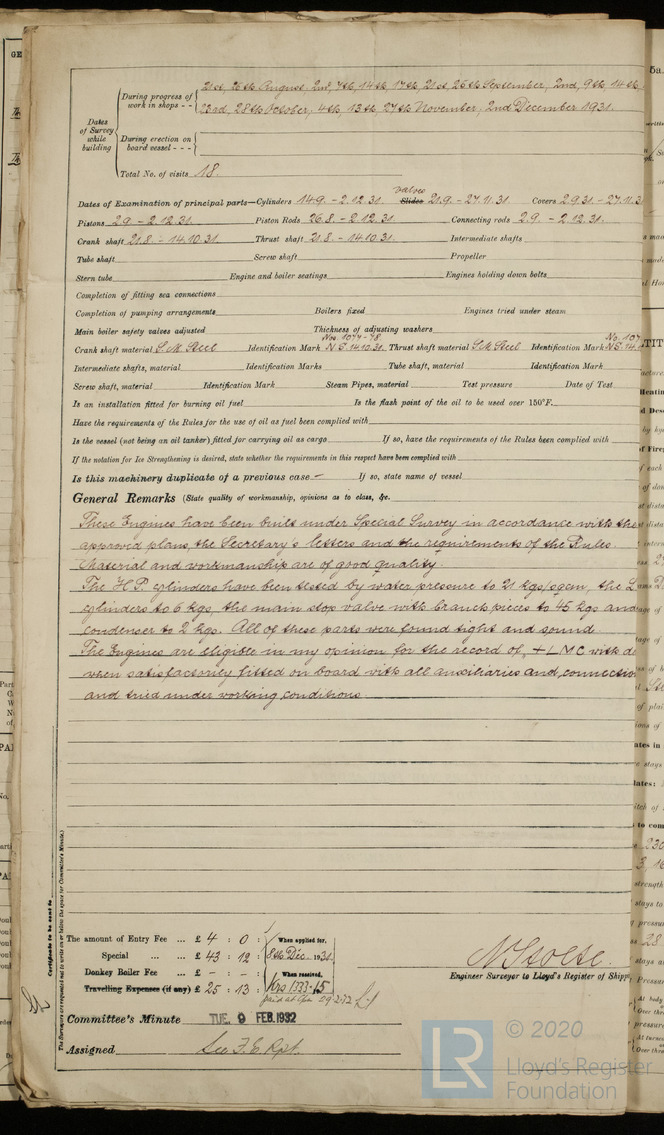 21st, 26th August, 2nd, 7th, 14th, 17th, 21st, 26th September, 2nd, 9th, 14th
During progress of work in shops - -
23rd, 28th October, 4th, 13th, 27th November, 2nd December 1931.
Dates of Survey while building
During erection on board vessel - - -
Total No. of visits 18.
valves
Dates of Examination of principal parts—Cylinders 14.9. - 2.12.31. Slides 21.9. - 27.11.31 Covers 2.9.31 - 27.11.3
Pistons 2.9 - 2.12.31. Piston Rods 26.8. - 2.12.31. Connecting rods 2.9. - 2.12.31.
Crank shaft 21.8. - 14.10.31. Thrust shaft 21.8. - 14.10.31. Intermediate shafts
Tube shaft Screw shaft Propeller
Stern tube Engine and boiler seatings Engines holding down bolts
Completion of fitting sea connections
Completion of pumping arrangements Boilers fixed Engines tried under steam
Main boiler safety valves adjusted Thickness of adjusting washers
Nos. 1077-78 No. 107
Crank shaft material S.M. Steel Identification Mark N.S. 14.10.31. Thrust shaft material S.M. Steel Identification Mark N.S. 14.
Intermediate shafts, material Identification Marks Tube shaft, material Identification Mark
Screw shaft, material Identification Mark Steam Pipes, material Test pressure Date of Test
Is an installation fitted for burning oil fuel Is the flash point of the oil to be used over 150°F.
Have the requirements of the Rules for the use of oil as fuel been complied with
Is the vessel (not being an oil tanker) fitted for carrying oil as cargo If so, have the requirements of the Rules been complied with
If the notation for Ice Strengthening is desired, state whether the requirements in this respect have been complied with
Is this machinery duplicate of a previous case - If so, state name of vessel
General Remarks (State quality of workmanship, opinions as to class, &c.
These Engines have been built under Special Survey in accordance with the
approved plans, the Secretary's letters and the requirements of the Rules
Material and workmanship are of good quality.
The H.P. cylinders have been tested by water pressure to 21 kgs/sqcm, the L
cylinders to 6 kgs, the main stop valve with branch pieces to 45 kgs and
condenser to 2 kgs. All of these parts were found tight and sound
The Engines are eligible in my opinion for the record of, + LMC with d
when satisfactorily fitted on board with all auxiliaries and connection
and tried under working conditions
Certificate to be sent to
The Surveyors are requested not to write on or below the space for Committee's Minute.)
The amount of Entry Fee ... £ 4 : 0 : When applied for,
Special ... ... £ 43 : 12 : 8th Dec. 1931.
Donkey Boiler Fee ... £ - : - : When received,
Travelling Expenses (if any) £ 25 : 13 :
N Stolte.
Engineer Surveyor to Lloyd's Register of Shipp
Committee's Minute TUE. 9 FEB. 1932
Assigned See F.E. Rpt.
© 2020
LR
Lloyd's Register
Foundation